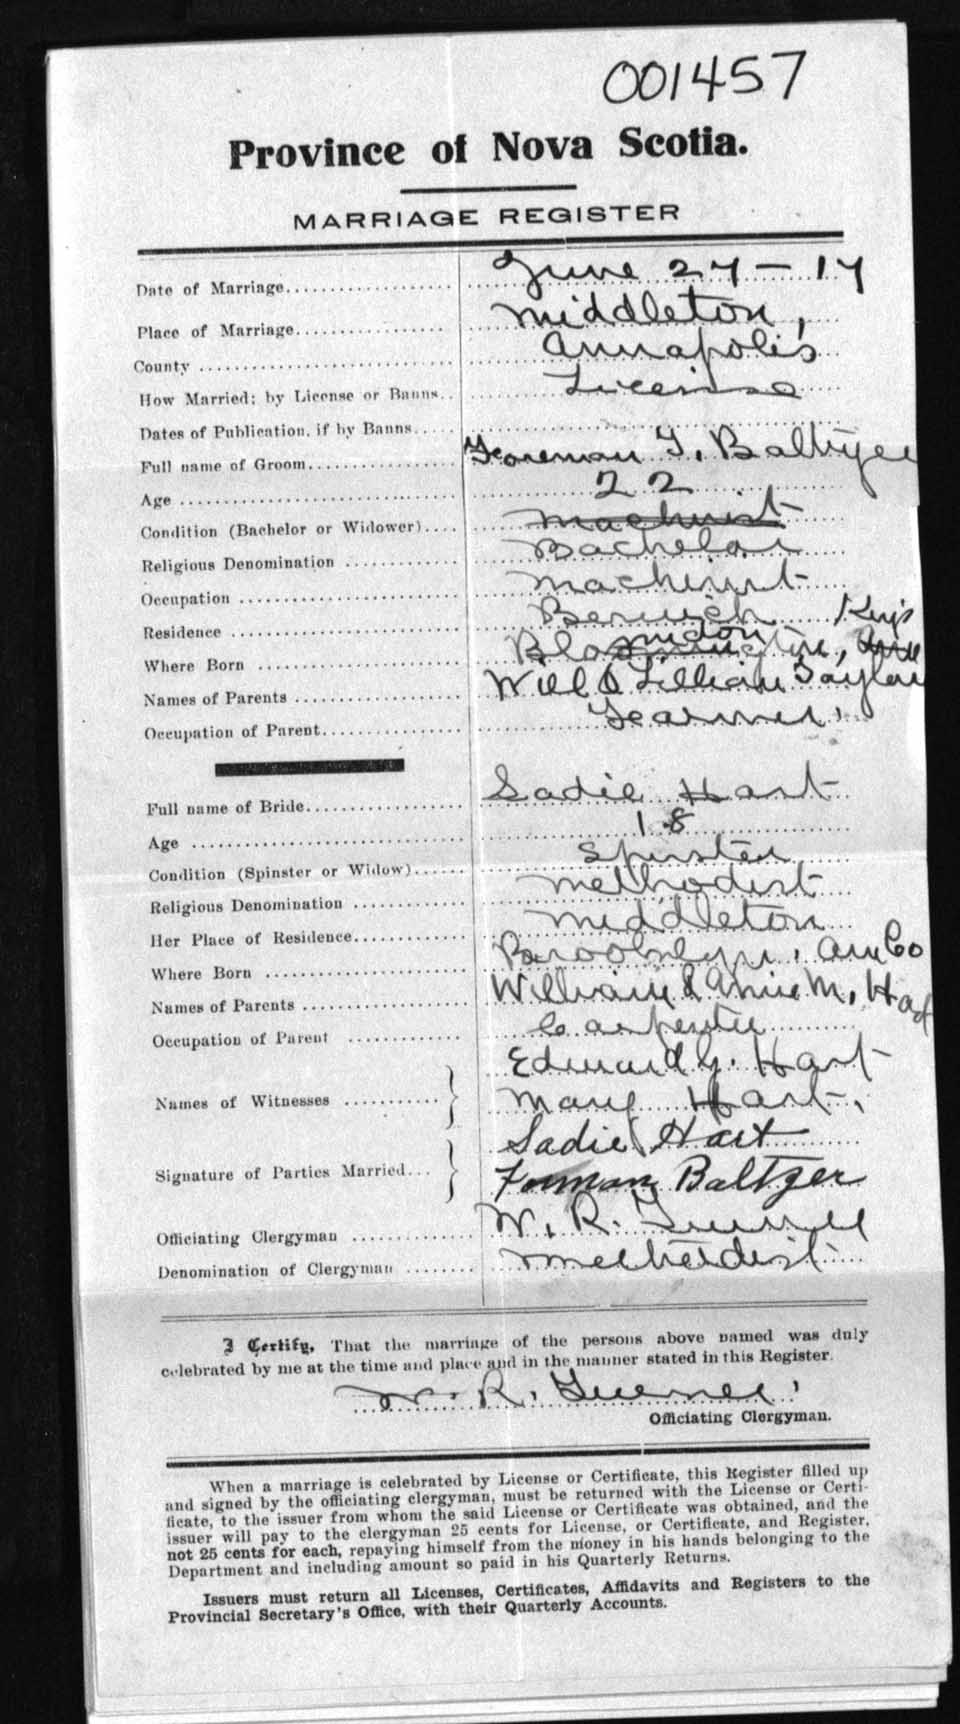 001457
Province of Nova Scotia.
MARRIAGE REGISTER
Date of Marriage June 27-17
Place of Marriage Middleton,
County Annapolis
How Married: by License or Banns License
Dates of Publication, if by Banns
Full name of Groom Foreman T. Baltzer
Age 22
Condition (Bachelor or Widower) Machinist
Religious Denomination Bachelor
Occupation Machinist
Residence Berwick Kings
Where Born
Names of Parents Will & Lillian Taylor
Occupation of Parent Farmer.
Full name of Bride Sadie Hart
Age 18
Condition (Spinster or Widow) Spinster
Religious Denomination Methodist
Her Place of Residence Middleton
Where Born Brooklyn, Ann Co
Names of Parents William & Annie M. Hart
Occupation of Parent Carpenter
Names of Witnesses Edward G. Hart
Mary Hart.
Signature of Parties Married Sadie Hart
Forman Baltzer
Officiating Clergyman W. R. Turner
Denomination of Clergyman Methodist
I Certify, That the marriage of the persons above named was duly
celebrated by me at the time and place and in the manner stated in this Register.
W. R. Turner
Officiating Clergyman.
When a marriage is celebrated by License or Certificate, this Register filled up
and signed by the officiating clergyman, must be returned with the License or Certi-
ficate, to the issuer from whom the said License or Certificate was obtained, and the
issuer will pay to the clergyman 25 cents for License, or Certificate, and Register,
not 25 cents for each, repaying himself from the money in his hands belonging to the
Department and including amount so paid in his Quarterly Returns.
Issuers must return all Licenses, Certificates, Affidavits and Registers to the
Provincial Secretary's Office, with their Quarterly Accounts.